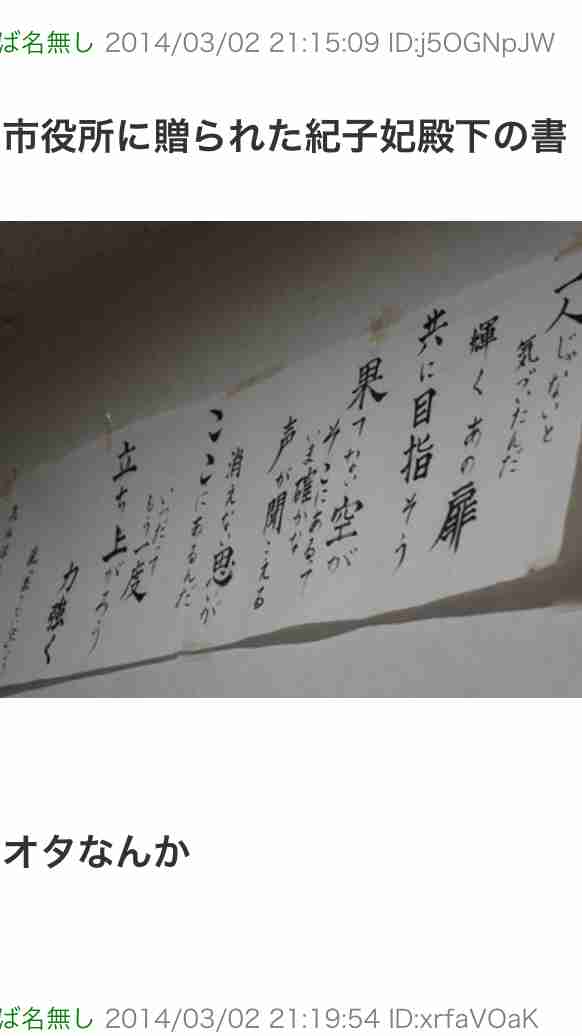 ば名無し 2014/03/02 21:15:09 ID:j5OGNpJW
市役所に贈られた紀子妃殿下の書
一人じゃないと
気づいたんだ
輝く あの扉
共に目指そう
果てない空が
そこにあるって
いま確かな
声が聞こえる
消えない思いが
ここにあるんだ
いつだって
もう一度
立ち上がろう
力強く
オタなんか
ば名無し 2014/03/02 21:19:54 ID:xrfaVOaK